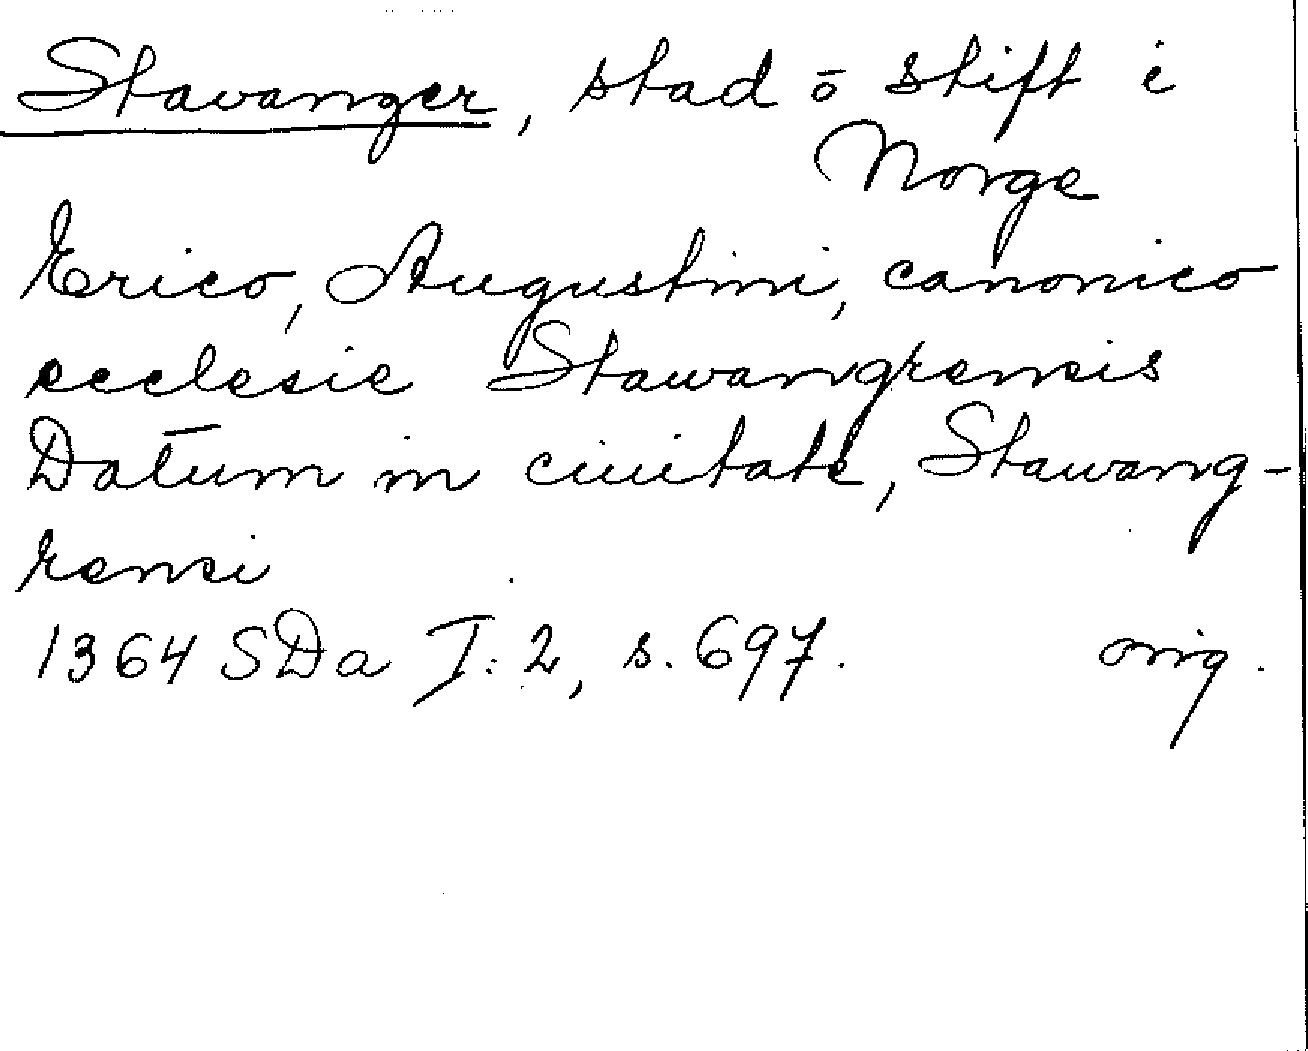 Stavanger, stad ō stift i
Norge
Erico, Augustini, canonico
ecclesie Stawangrensis
Datum in ciuitate, Stawang-
rensi
1364 SDa I: 2, s. 697. orig.